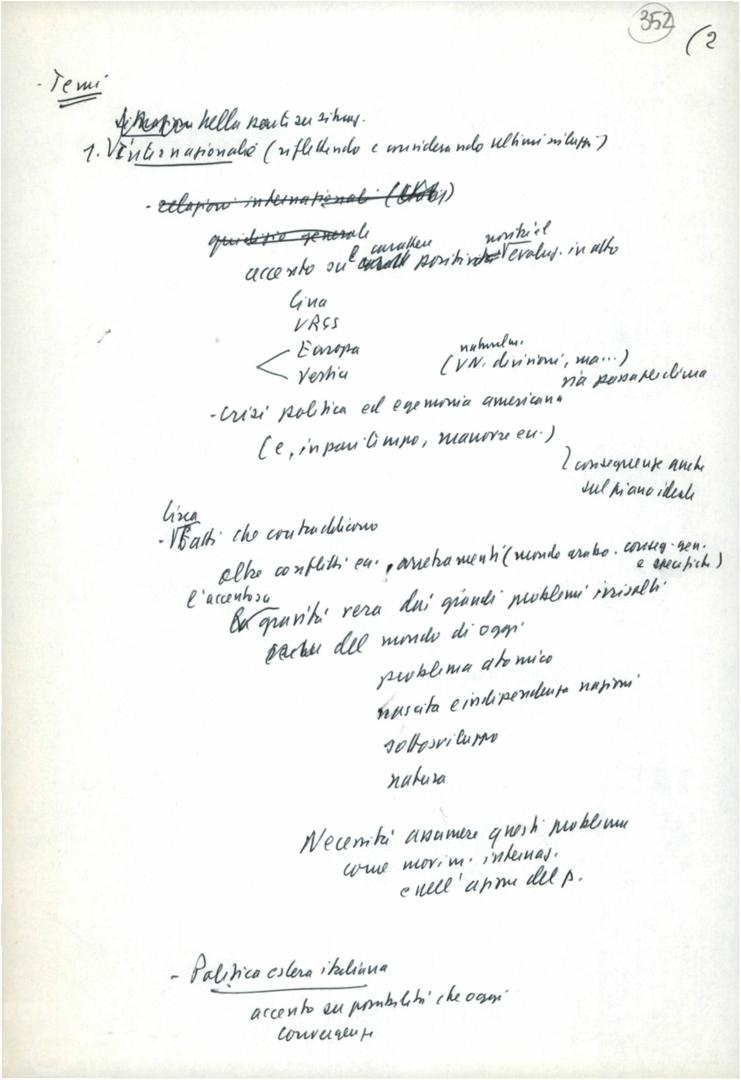 352
(2
- Temi
nella sua situaz.
1. Internazionale (riflettendo e considerando ultimi sviluppi)
- relazioni internazionali
giudizio generale
carattere novità e
accento sul positivo evoluz. in atto
Cina
URSS
Europa
Vestia
naturalm.
(VN. divisioni, ma...)
sia passaper clima
- Crisi politica ed egemonia americana
(e, in pari tempo, manovre ecc.)
conseguenze anche
sul piano ideale
Linea
- Fatti che contraddicono
oltre conflitti ecc., arretramenti (mondo arabo. conseg. gen.
e specifiche)
l'accento su
gravità vera dei grandi problemi irrisolti
del mondo di oggi
problema atomico
nascita e indipendenza nazioni
sottosviluppo
natura
Necessità assumere questi problemi
come movim. internaz.
e nell'azione del p.
- Politica estera italiana
accento su possibilità che oggi
convergenze